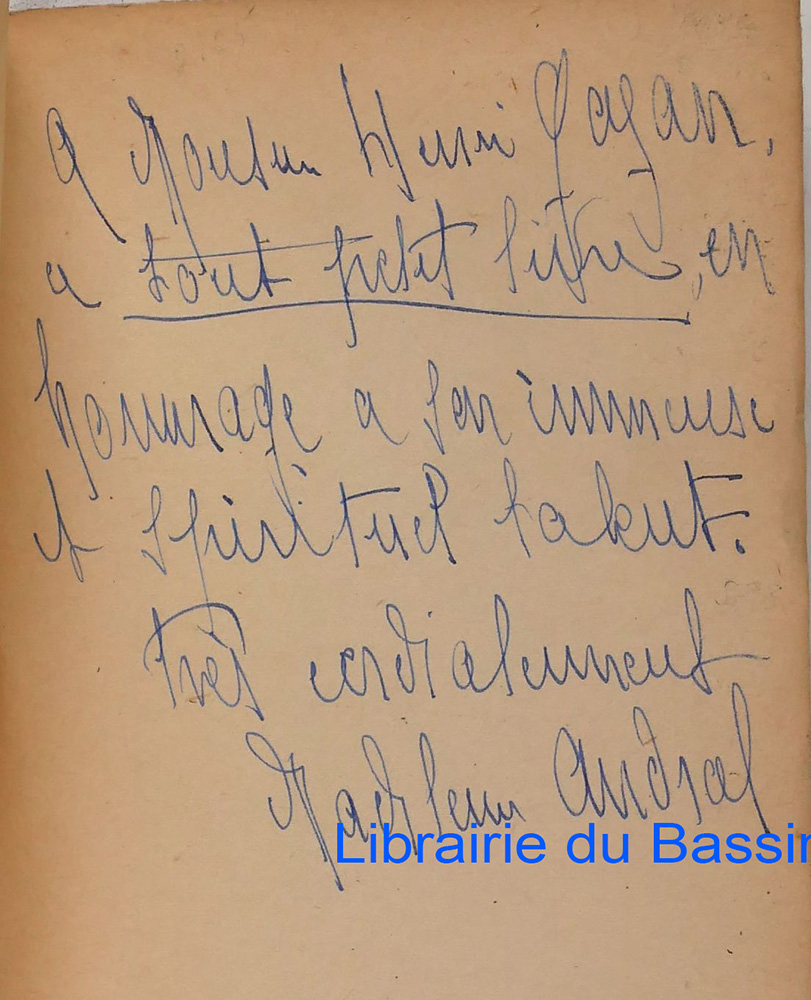 A Monsieur Henri Cazan,
a tout petit titre, en
hommage a son immense
et spirituel talent.
très cordialement
Madeleine Andral
Librairie du Bassin